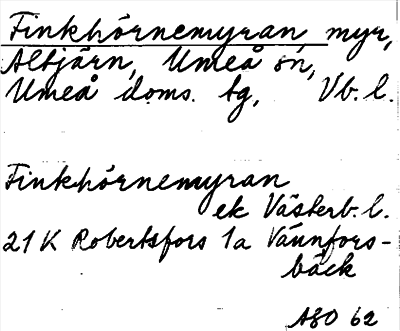 Finkhörnemyran, myr,
Altjärn, Umeå sn,
Umeå doms. tg, Vb. l.
Finkhörnemyran
ek Västerb. l.
21 K Robertsfors 1a
bäck
62